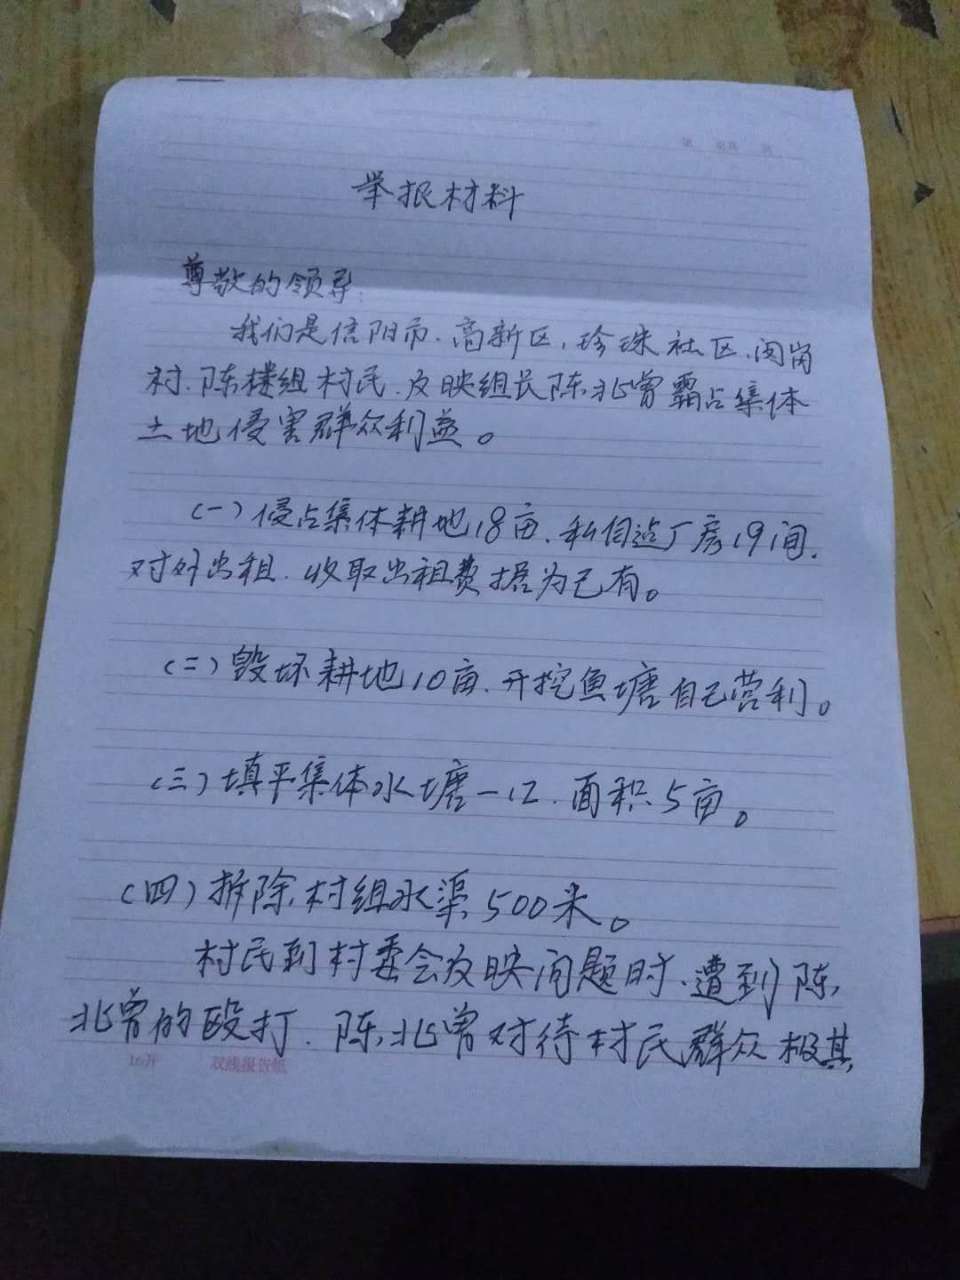 举报材料
尊敬的领导:
我们是信阳市.高新区,珍珠社区.闵岗
村.陈楼组村民.反映组长陈兆曾霸占集体
土地侵害群众利益。
(一)侵占集体耕地18亩.私自造厂房19间.
对外出租.收取出租费据为己有。
(二)毁坏耕地10亩.开挖鱼塘自己营利。
(三)填平集体水塘一口.面积5亩。
(四)拆除村组水渠500米。
村民到村委会反映问题时.遭到陈
兆曾的殴打.陈兆曾对待村民群众极其
16开 双线报告纸